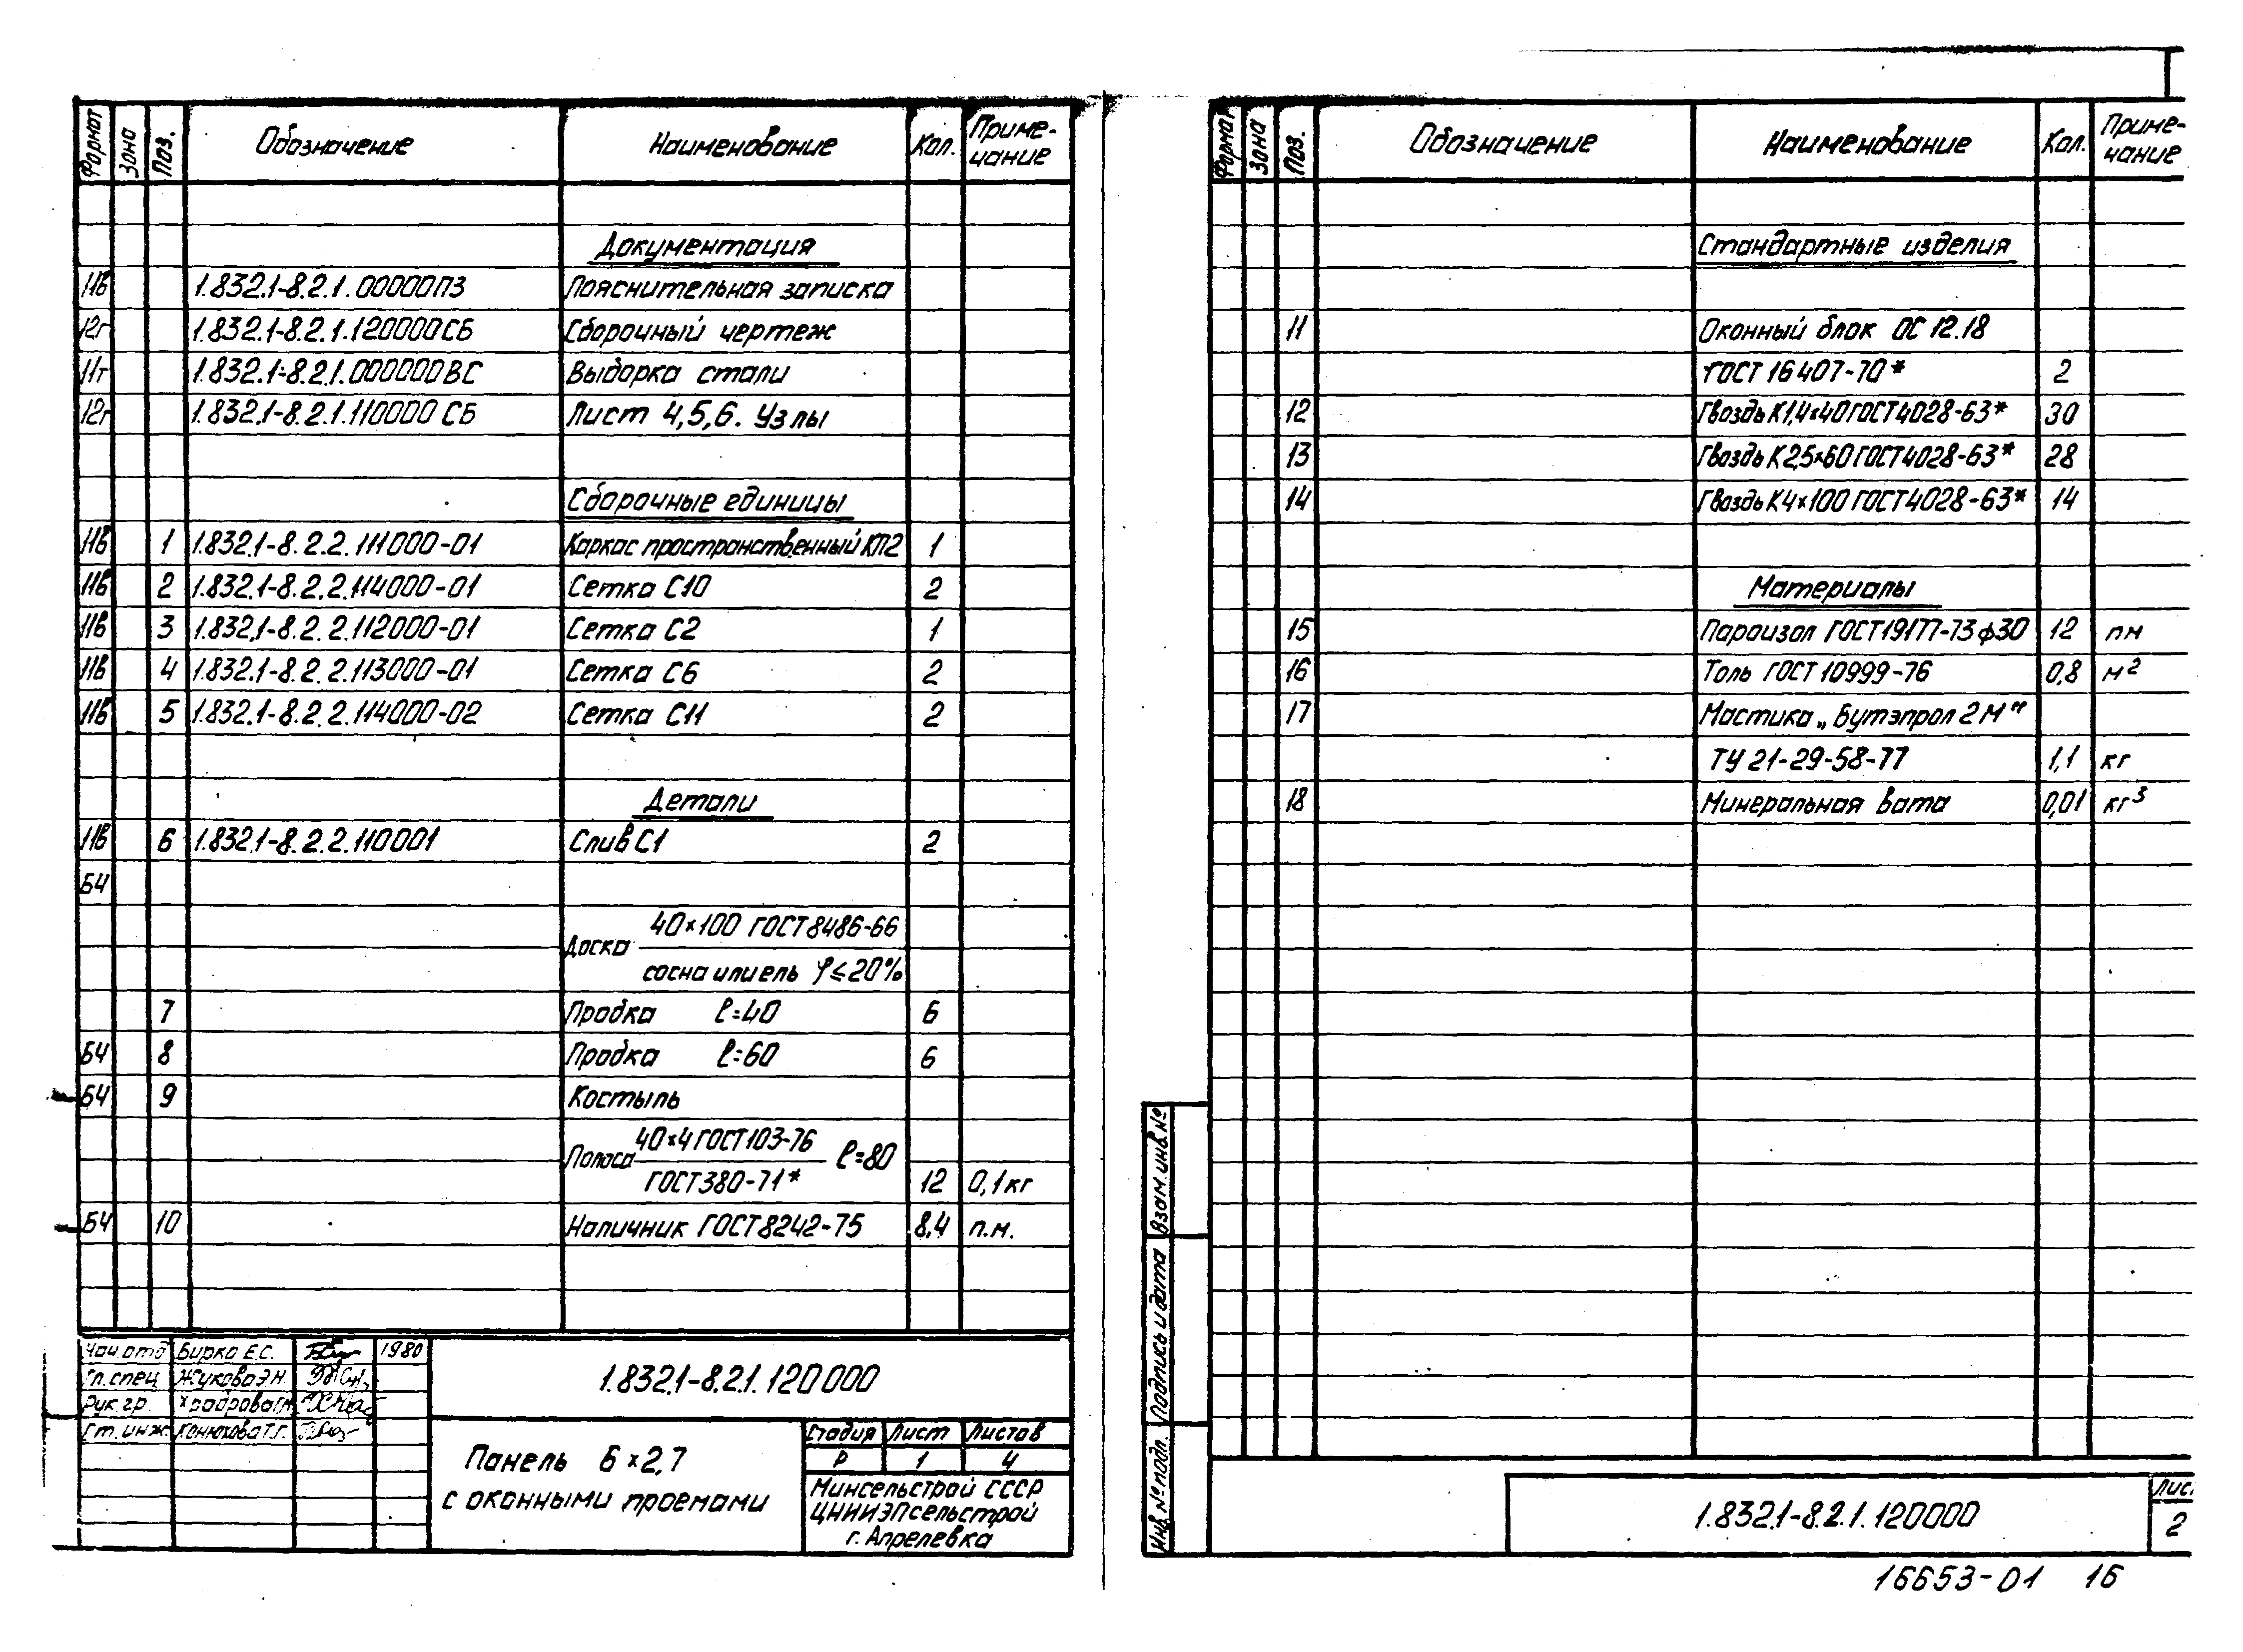 Формат Зона Поз. Обозначение Наименование Кол. Приме-
чание
Документация
11в 1.832.1-8.2.1.00000ПЗ Пояснительная записка
12г 1.832.1-8.2.1.120000СБ Сборочный чертеж
11г 1.832.1-8.2.1.000000ВС Выборка стали
12г 1.832.1-8.2.1.110000СБ Лист 4,5,6. Узлы
Сборочные единицы
11в 1 1.832.1-8.2.2.111000-01 Каркас пространственный КП2 1
11в 2 1.832.1-8.2.2.114000-01 Сетка С10 2
11в 3 1.832.1-8.2.2.112000-01 Сетка С2 1
11в 4 1.832.1-8.2.2.113000-01 Сетка С6 2
11в 5 1.832.1-8.2.2.114000-02 Сетка С11 2
Детали
11в 6 1.832.1-8.2.2.110001 Слив С1 2
БЧ
40×100 ГОСТ 8486-66
Доска
сосна или ель φ≤20%
7 Пробка ℓ=40 6
БЧ 8 Пробка ℓ=60 6
БЧ 9 Костыль
40×4 ГОСТ 103-76
Полоса ℓ=80
ГОСТ 380-71* 12 0,1кг
БЧ 10 Наличник ГОСТ 8242-75 8,4 п.м.
Нач.отд Бирко Е.С. 1980
Гл.спец Жукова Э.Н.
Рук.гр. Храброва
Ст.инж. Конюхова Т.Г.
1.832.1-8.2.1.120000
Панель 6×2,7
с оконными проемами
Стадия Лист Листов
Р 1 4
Минсельстрой СССР
ЦНИИЭПсельстрой
г. Апрелевка
Формат Зона Поз. Обозначение Наименование Кол. Приме-
чание
Стандартные изделия
11 Оконный блок ОС 12.18
ГОСТ 16407-70* 2
12 Гвоздь К1,4×40 ГОСТ 4028-63* 30
13 Гвоздь К2,5×60 ГОСТ 4028-63* 28
14 Гвоздь К4×100 ГОСТ 4028-63* 14
Материалы
15 Пароизол ГОСТ 19177-73 ф30 12 пм
16 Толь ГОСТ 10999-76 0,8 м²
17 Мастика „Бутэпрол 2М"
ТУ 21-29-58-77 1,1 кг
18 Минеральная вата 0,01 кг³
Взам. инв. №
Подпись и дата
Инв. № подл.
1.832.1-8.2.1.120000
Лис.
2
16653-01 16